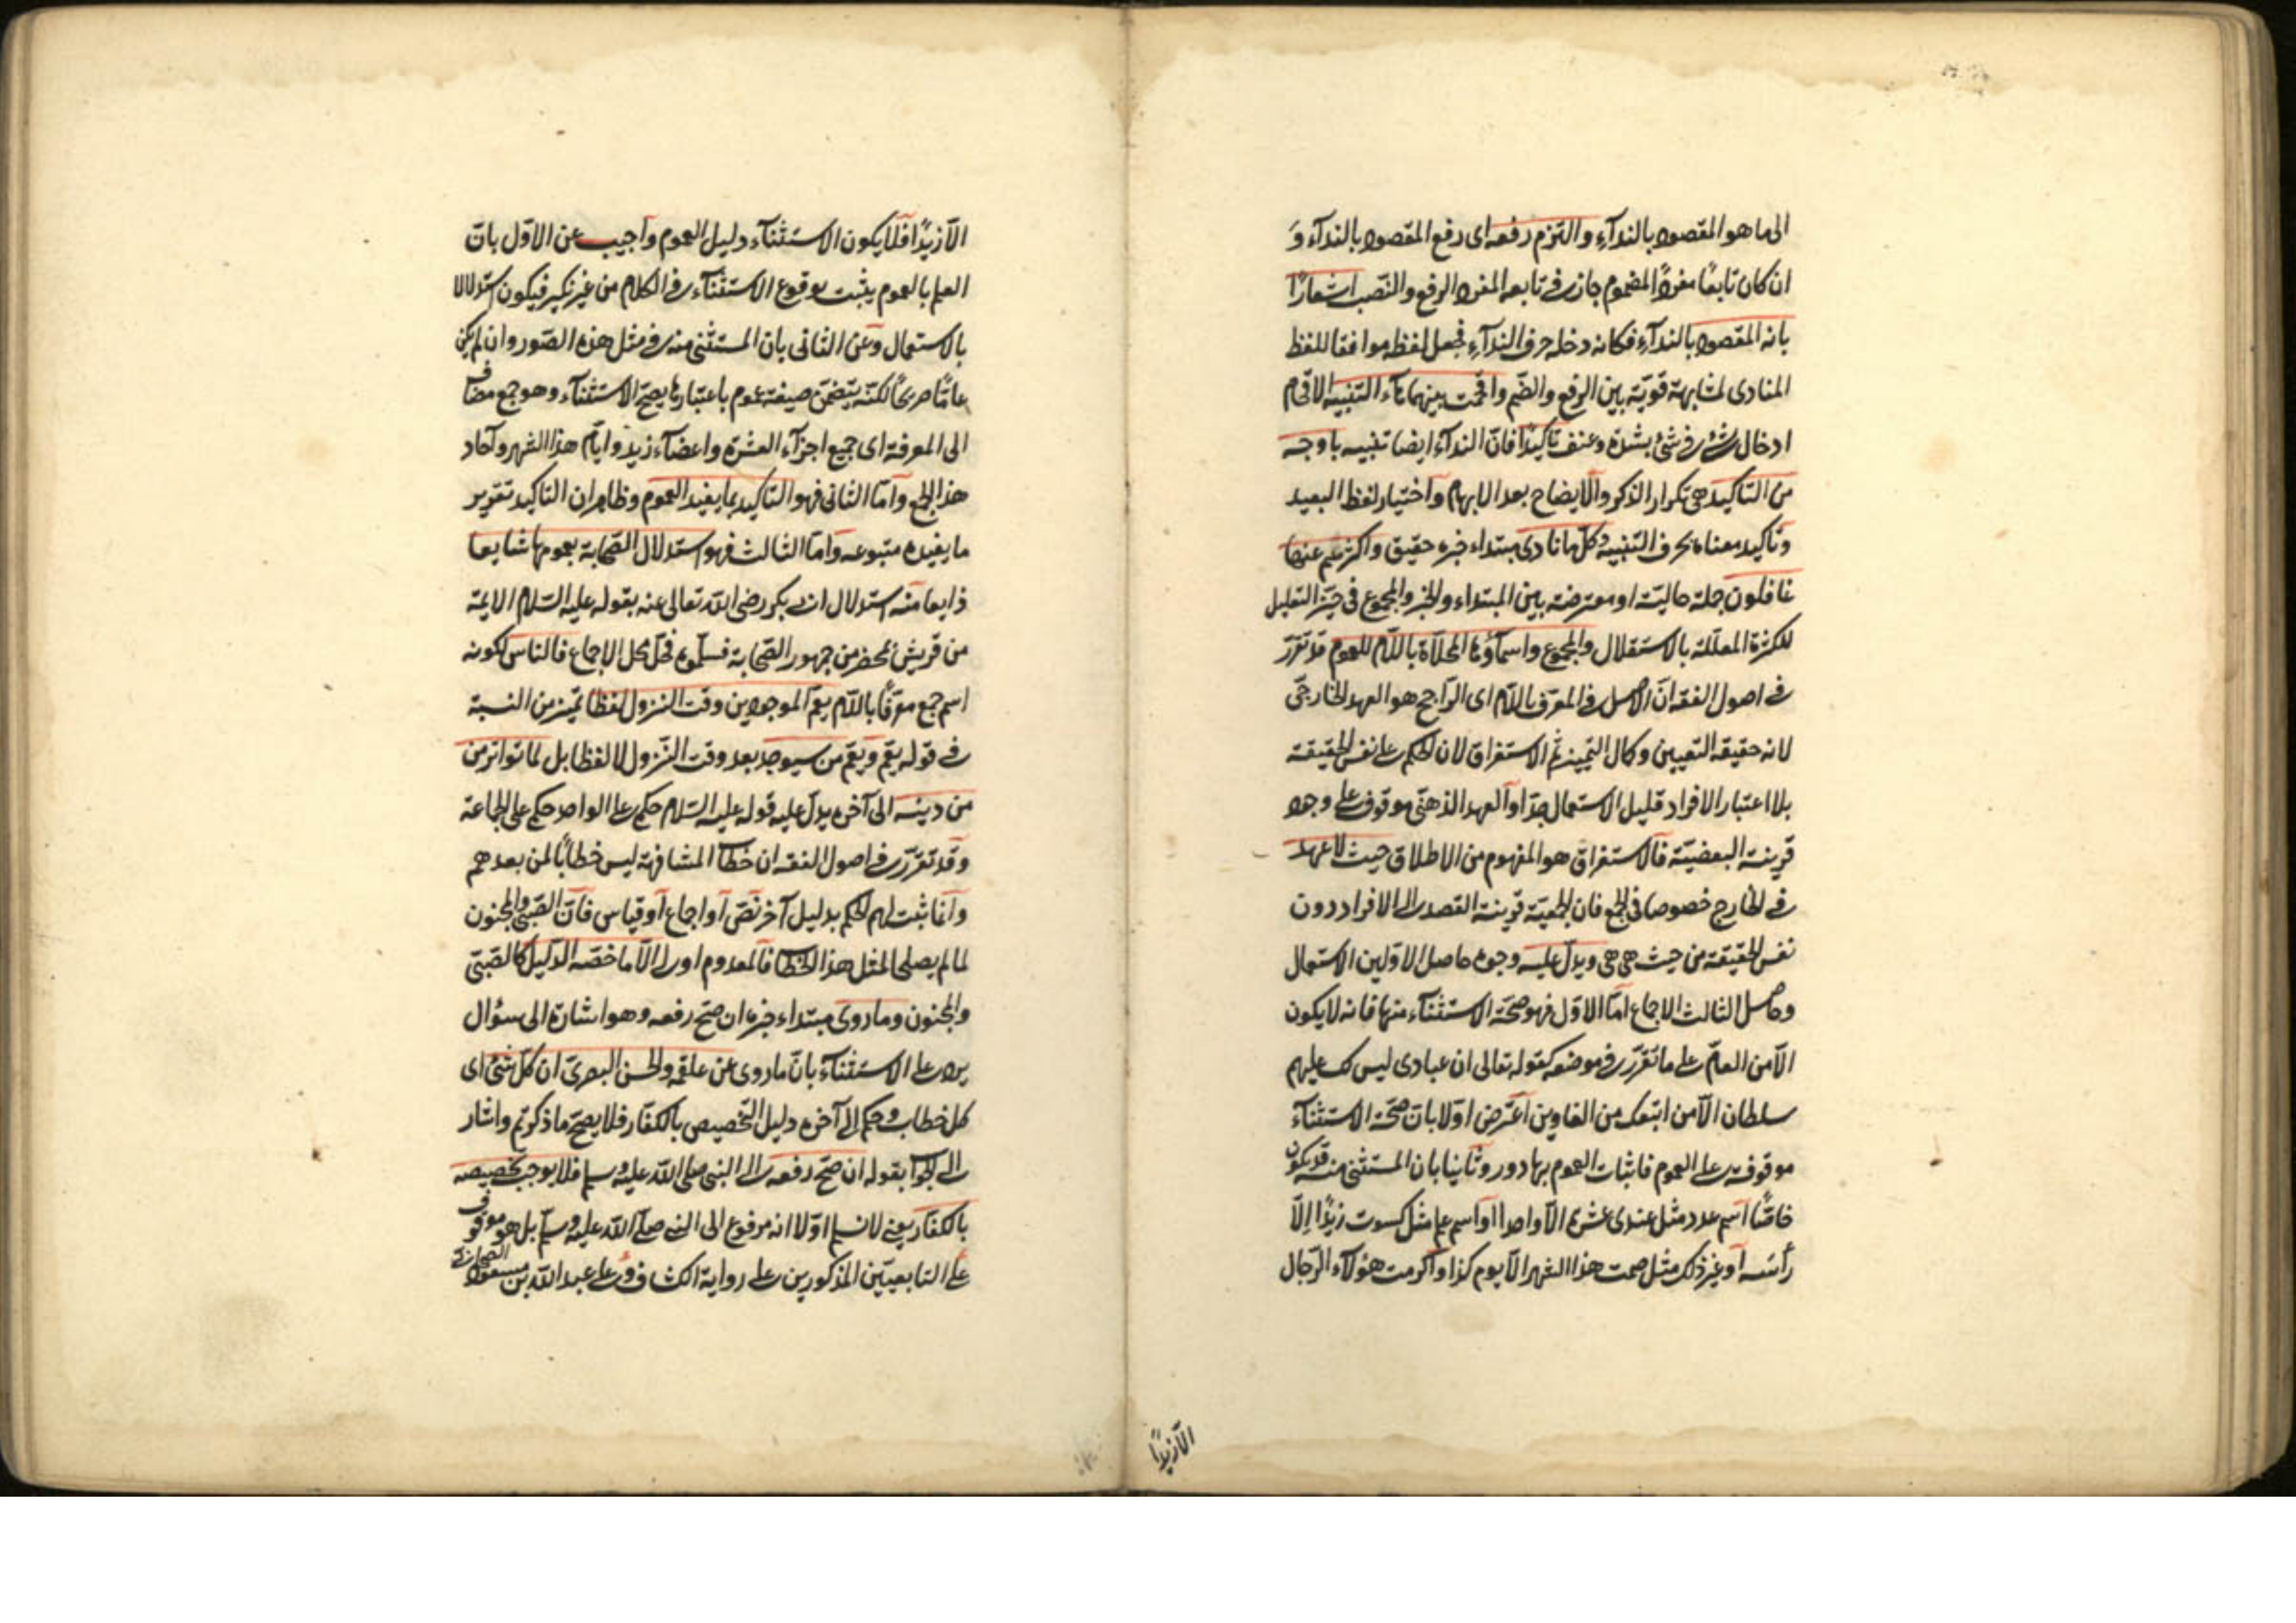 الى ما هو المقصود بالندآء والتزم رفعه اى رفع المقصود بالندآء وَ
ان كان تابعًا مفردًا لمضموم جاز فى تابعه المفرد الرفع والنّصب اشعارًا
بانه المقصود بالندآء فكانه دخله حرف الندآء فجعل لفظه موافقا للفظ
المنادى لمشابهة قويّة بين الرفع والضّم واقحمت بينهما هآء التنبيه الاقحام
ادخال شئ فى شئ بشدة وعنف تأكيدًا فانّ الندآء ايضا تنبيه باوجه
من التاكيد هى تكرار الذكر والايضاح بعد الابهام واختيار لفظ البعيد
وتأكيد معناه بحرف التنبيه وكل ما نادى مبتداء خبره حقيق واكثرهم عنها
غافلون جملة حاليّة او معترضة بين المبتداء والخبر والمجموع فى حيّز التعليل
للكثرة المعلّلة بالاستقلال والجموع واسمآؤها المحلاّة باللّام للعموم قد تقرّر
فى اصول الفقه انّ الاصل فى المعرّف باللّام اى الرّاجح هو العهد الخارجىّ
لانه حقيقة التعيين وكمال التميز ثم الاستغراق لان الحكم على نفس الحقيقة
بلا اعتبار الافراد قليل الاستعمال جدّا والعهد الذهنىّ موقوف على وجود
قرينة البعضيّة فالاستغراق هو المفهوم من الاطلاق حيث لا عهد
فى الخارج خصوصا فى الجمع فان الجمعيّة قرينة القصد الى الافراد دون
نفس الحقيقة من حيث هى هى ويدلّ عليه وجوه حاصل الاوّلين الاستعمال
وحاصل الثالث الاجماع امّا الاوّل فهو صحّة الاستثنآء منها فانه لا يكون
الّا من العامّ على ما تقرّر فى موضعه كقوله تعالى ان عبادى ليس لك عليهم
سلطان الّا من اتبعك من الغاوين اعترض اوّلا بانّ صحّة الاستثنآء
موقوفة على العموم فاثبات العموم بها دور وثانيا بان المستثنى منه قد يكون
خاصًّا اسم عدد مثل عندى عشرة الّا واحدا او اسم علم مثل كسوت زيدًا الّا
رأسَه او غير ذلك مثل صمت هذا الشهر الّا يوم كذا واكرمت هؤلآء الرّجال
الّا زيدًا
الّا زيدًا فلا يكون الاستثنآء دليل العموم واجيب عن الاوّل بانّ
العلم بالعموم يثبت بوقوع الاستثنآء فى الكلام من غير نكير فيكون استدلالا
بالاستعمال وعن الثانى بان المستثنى منه فى مثل هذه الصّور وان لم يكن
عامًّا صريحًا لكنّه يتضمّن صيغة عموم باعتبارها يصحّ الاستثنآء وهو جمع مضاف
الى المعرفة اى جميع اجزآء العشرة واعضآء زيد وايّام هذا الشهر وآحاد
هذا الجمع وامّا الثانى فهو التاكيد بما يفيد العموم وظاهر ان التاكيد تقرير
ما يفيده متبوعه وامّا الثالث فهو استدلال الصّحابة بعمومها شايعا
ذايعا منه استدلال ابى بكر رضى الله تعالى عنه بقوله عليه السّلام الايمّة
من قريش بمحضر من جمهور الصّحابة فسلّموه فحلّ محل الاجماع فالناس لكونه
اسم جمع معرّفًا باللّام يعمّ الموجودين وقت النزول لفظا تميز من النسبة
فى قوله يعّم ويعّم من سيوجد بعد وقت النّزول لا لفظا بل لما تواتر من
من دينه الى آخره يدلّ عليه قوله عليه السّلام حكمى على الواحد حكمى على الجماعة
وقد تقرّر فى اصول الفقه ان خطاب المشافهة ليس خطابًا لمن بعدهم
وانّما ثبت لهم الحكم بدليل آخر نصّ او اجماع او قياس فانّ الصّبىّ والمجنون
لما لم يصلحا لمثل هذا الخطاب فالمعدوم اولى الّا ما خصّه الدّليل كالصّبىّ
والمجنون وما روى مبتداء خبره ان صحّ رفعه وهو اشارة الى سؤال
يرد على الاستثنآء بانّ ما روى عن علقمة والحسن البصرىّ ان كلّ شئ اى
كل خطاب وحكم الى آخره دليل التّخصيص بالكفّار فلا يصحّ ما ذكرتم واشار
الى الجواب بقوله ان صحّ رفعه الى النبى صلى اللّه عليه وسلم فلا يوجب تخصيصه
بالكفّار يعنى لا نسلم اوّلا انه مرفوع الى النبى صلّى اللّه عليه وسلّم بل هو موقوف
على التابعيّين المذكورين على رواية الكشاف وعلى عبد اللّه بن مسعود الصحابىّ